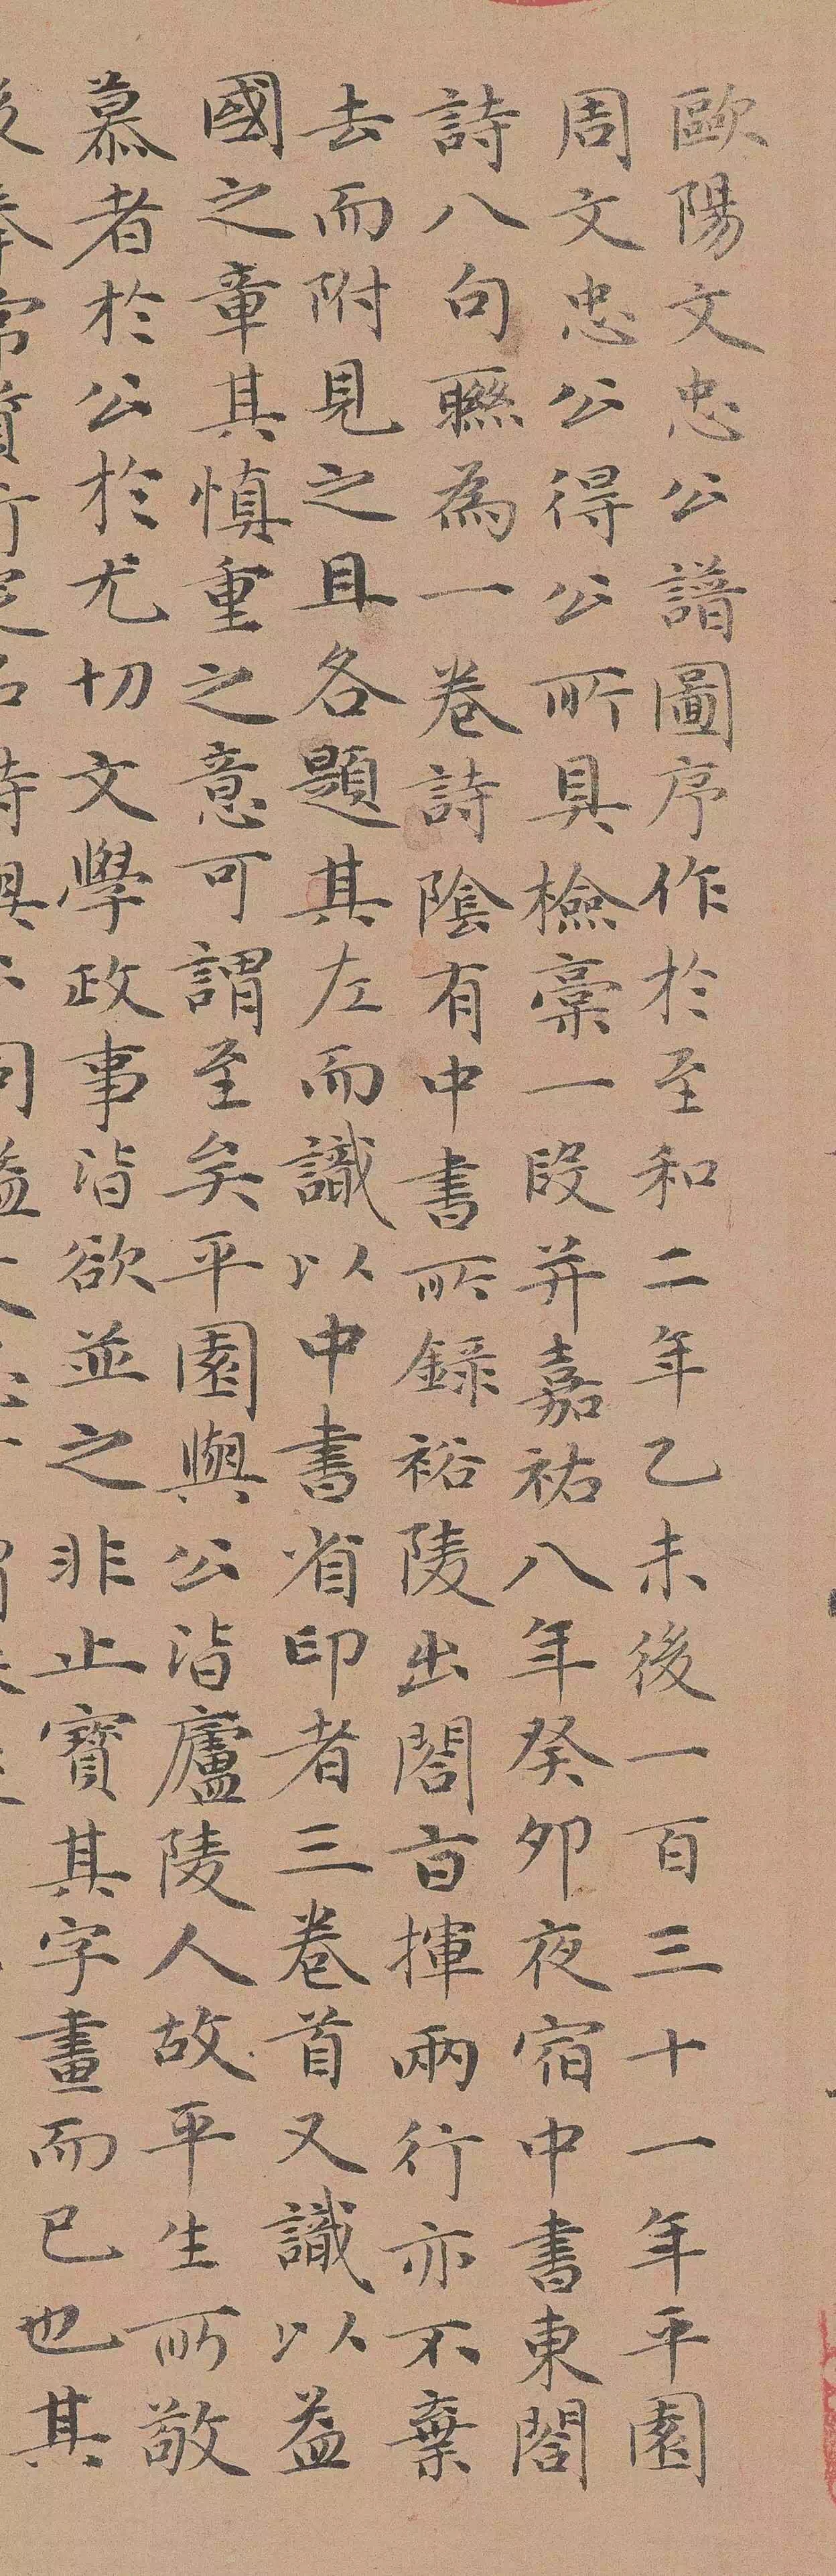 歐陽文忠公譜圖序作於至和二年乙未後一百三十一年平園
周文忠公得公所具檢稾一段并嘉祐八年癸卯夜宿中書東閤
詩八句聮為一卷詩陰有中書所錄裕陵出閤旨揮兩行亦不棄
去而附見之且各題其左而識以中書省印者三卷首又識以益
國之章其慎重之意可謂至矣平園與公皆廬陵人故平生所敬
慕者於公於尤切文學政事皆欲並之非止寳其字畫而已也其